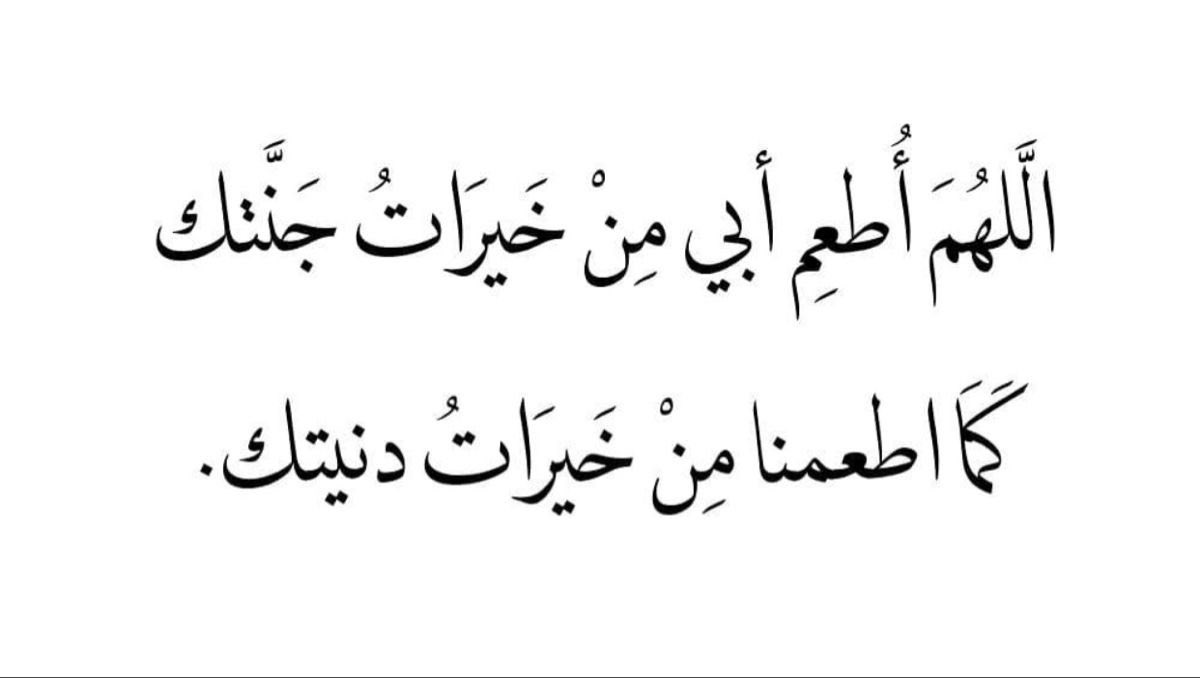 الَّلهُمَ أُطعِم أبي مِنْ خَيرَاتُ جَنَّتك
كَمَا اطعمنا مِنْ خَيرَاتُ دنيتك.